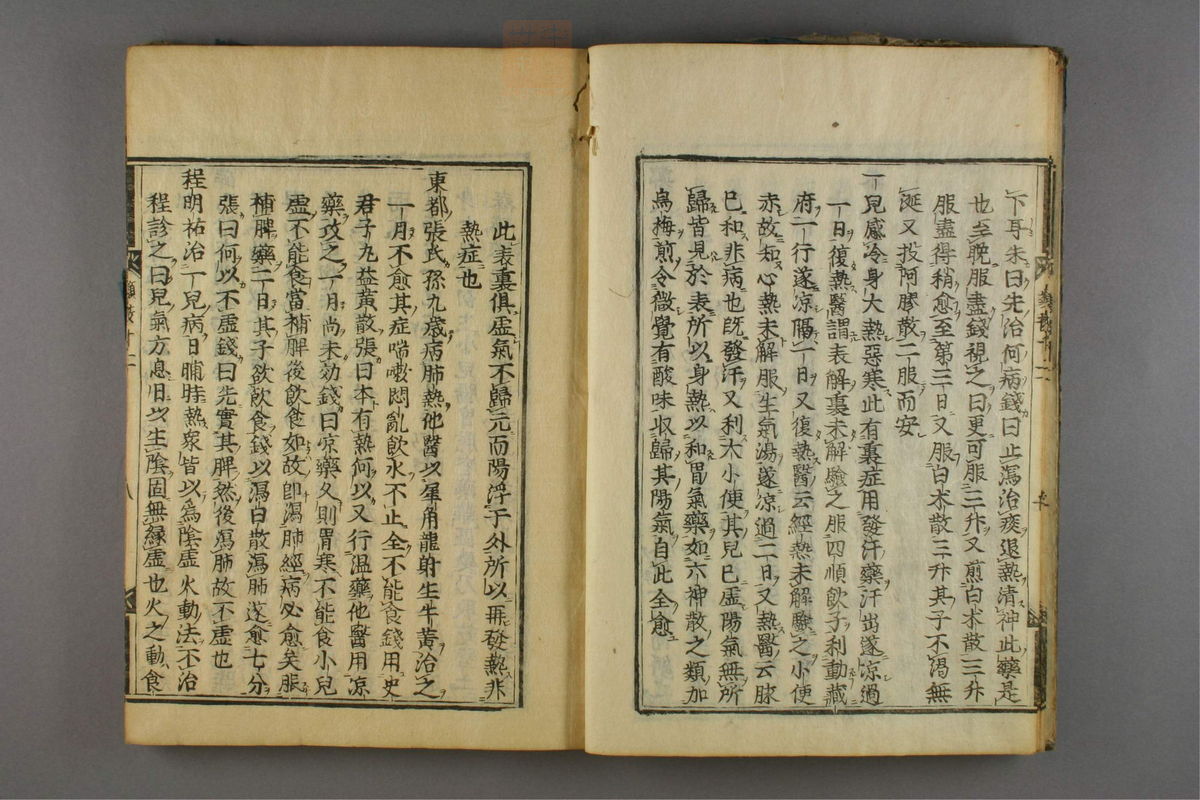 下耳朱曰先治何病錢曰止瀉治痰退熱清神此藥是
也至晚服盡錢視之曰更可服三升又煎白朮散三升
服盡得稍愈至第三日又服白朮散三升其子不渴無
涎又投阿膠散二服而安
一兒感冷身大熱惡寒此有裏症用發汗藥汗出遂凉過
一日復熱醫謂表解裏未解驗之服四順飲子利動藏
府二行遂凉隔二日又復熱醫云經熱未解驗之小便
赤故知心熱未解服生氣湯遂凉過二日又熱醫云脉
已和非病也旣發汗又利大小便其兒已虛陽氣無所
歸皆見於表所以身熱以和胃氣藥如六神散之類加
烏梅煎令微覺有酸味收歸其陽氣自此全愈
此表裏俱虛氣不歸元而陽浮于外所以再發熱非
熱症也
東都張氏孫九歲病肺熱他醫以犀角龍射生牛黃治之
一月不愈其症喘嗽悶亂飲水不止全不能食錢用史
君子丸益黃散張曰本有熱何以又行温藥他醫用凉
藥攻之一月尚未効錢曰凉藥久則胃寒不能食小兒
虛不能食當補脾後飲食如故卽瀉肺經病必愈矣服
補脾藥二日其子欲飲食錢以瀉白散瀉肺遂愈七分
張曰何以不虛錢曰先實其脾然後瀉肺故不虛也
程明祐治一兒病日晡時熱衆皆以爲陰虛火動法不治
程診之曰兒氣方息旧以生陰固無緣虛也火之動食